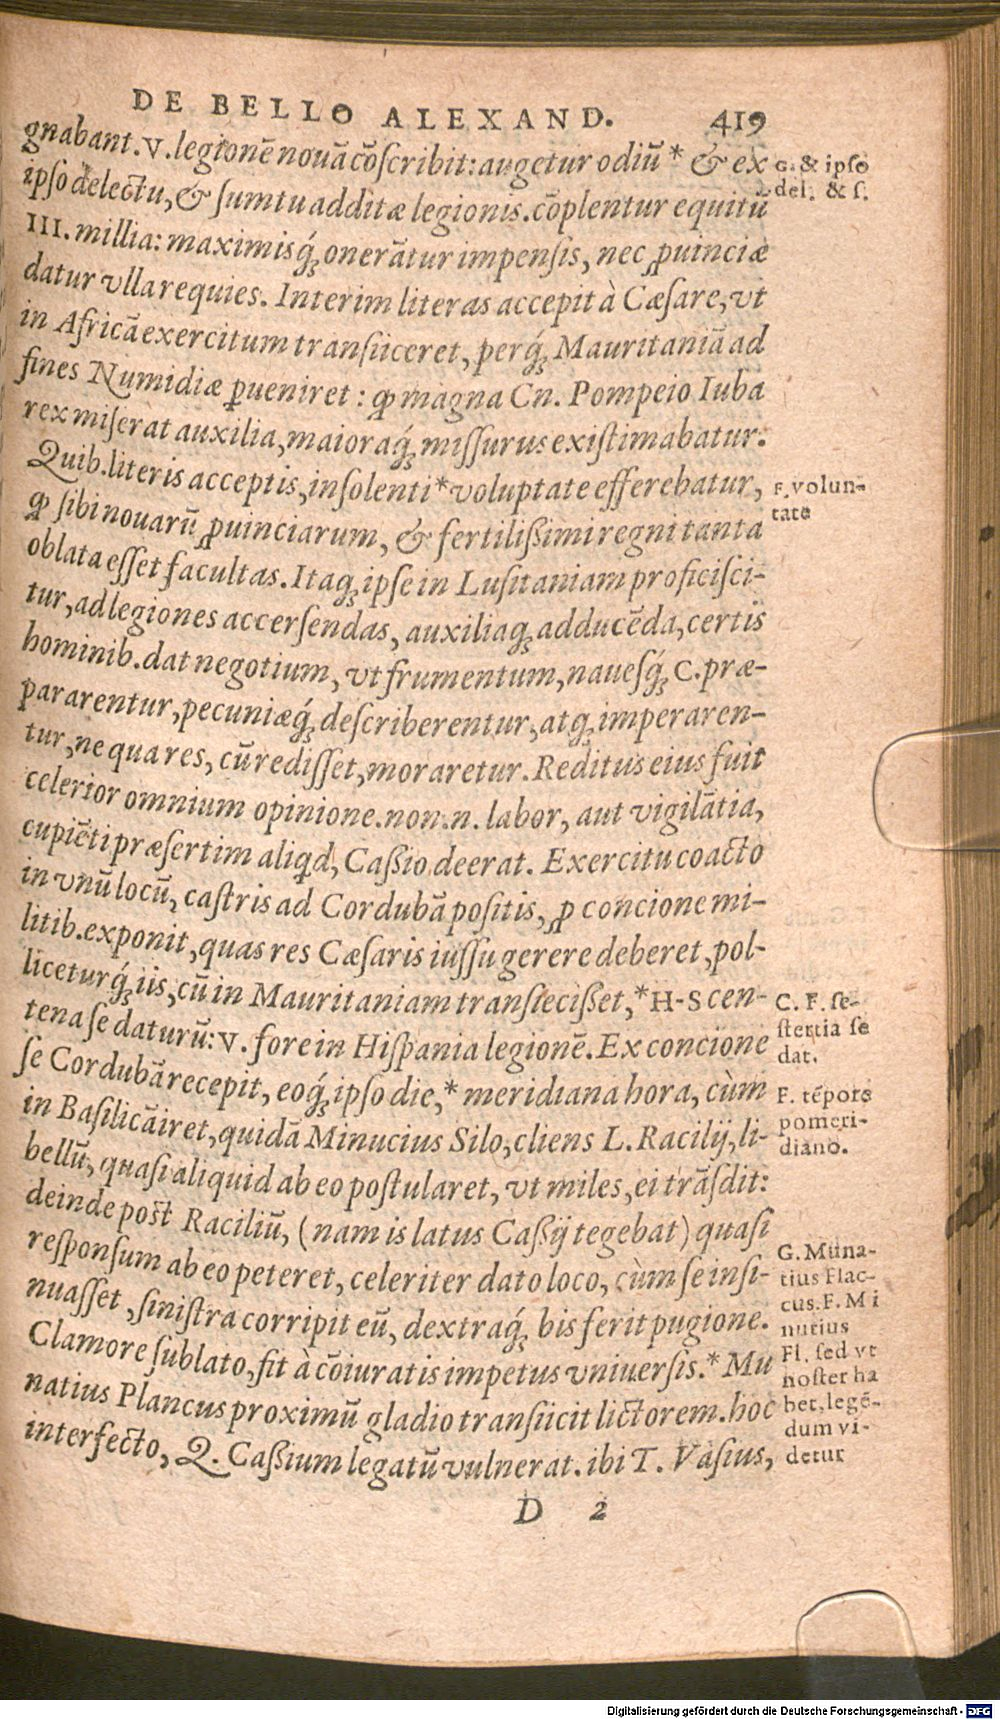 DE BELLO ALEXAND. 419
gnabant. V. legionē nouā cōſcribit: augetur odiū* & ex
ipſo delectu, & ſumtu additæ legionis. cōplentur equitū
III. millia: maximisq́ꝫ onerātur impenſis, nec ꝓuinciæ
datur vlla requies. Interim literas accepit à Cæſare, vt
in Africā exercitum transijceret, perq́ꝫ Mauritaniā ad
fines Numidiæ ꝑueniret: ꝙ magna Cn. Pompeio Iuba
rex miſerat auxilia, maioraq́ꝫ miſſurus exiſtimabatur.
Quib. literis acceptis, inſolenti* voluptate efferebatur,
ꝙ ſibi nouarū ꝓuinciarum, & fertilißimi regni tanta
oblata eſſet facultas. Itaqꝫ ipſe in Luſitaniam proficiſci-
tur, ad legiones accerſendas, auxiliaqꝫ adducēda, certis
hominib. dat negotium, vt frumentum, naueſq́ꝫ C. præ-
pararentur, pecuniæq́ꝫ deſcriberentur, atqꝫ imperaren-
tur, ne qua res, cū rediſſet, moraretur. Reditus eius fuit
celerior omnium opinione. non. n. labor, aut vigilātia,
cupiēti præſertim aliqd, Caßio deerat. Exercitu coacto
in vnū locū, caſtris ad Cordubā poſitis, ꝓ concione mi-
litib. exponit, quas res Cæſaris iuſſu gerere deberet, pol-
liceturq́ꝫ iis, cū in Mauritaniam transieciſſet, * H-S cen-
tena ſe daturū: V. fore in Hiſpania legionē. Ex concione
ſe Cordubā recepit, eoq́ꝫ ipſo die, * meridiana hora, cùm
in Baſilicā iret, quidā Minucius Silo, cliens L. Racilij, li-
bellū, quaſi aliquid ab eo poſtularet, vt miles, ei trāſdit:
deinde poſt Raciliū, (nam is latus Caßij tegebat) quaſi
reſponſum ab eo peteret, celeriter dato loco, cùm ſe inſi-
nuaſſet, ſiniſtra corripit eū, dextraq́ꝫ bis ferit pugione.
Clamore ſublato, fit à cōiuratis impetus vniuerſis. * Mu
natius Plancus proximū gladio transijcit lictorem. hoc
interfecto, Q. Caßium legatū vulnerat. ibi T. Vaſius,
D 2
G. & ipſo
del. & ſ.
F. volun-
tate
C. F. ſe-
ſtertia ſe
dat.
F. tēpore
pomeri-
diano.
G. Muna-
tius Flac-
cus. F. Mi
nutius
Fl. ſed vt
noſter ha
bet, legē-
dum vi-
detur
Digitalisierung gefördert durch die Deutsche Forschungsgemeinschaft - DFG